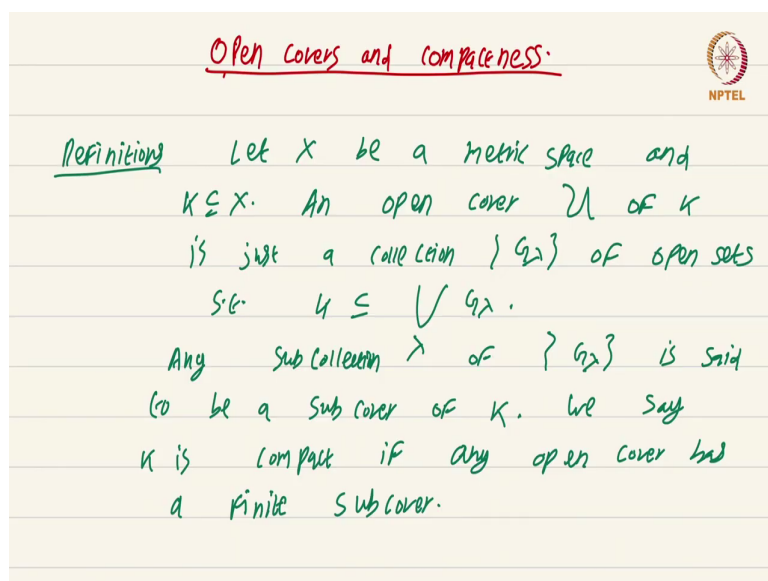 Open covers and compactness.
NPTEL
Definitions Let X be a metric space and
K ⊆ X. An open cover 𝒰 of K
is just a collection {G_λ} of open sets
s.t. K ⊆ ⋃_λ G_λ.
Any subcollection of {G_λ} is said
to be a subcover of K. We say
K is compact if any open cover has
a finite subcover.